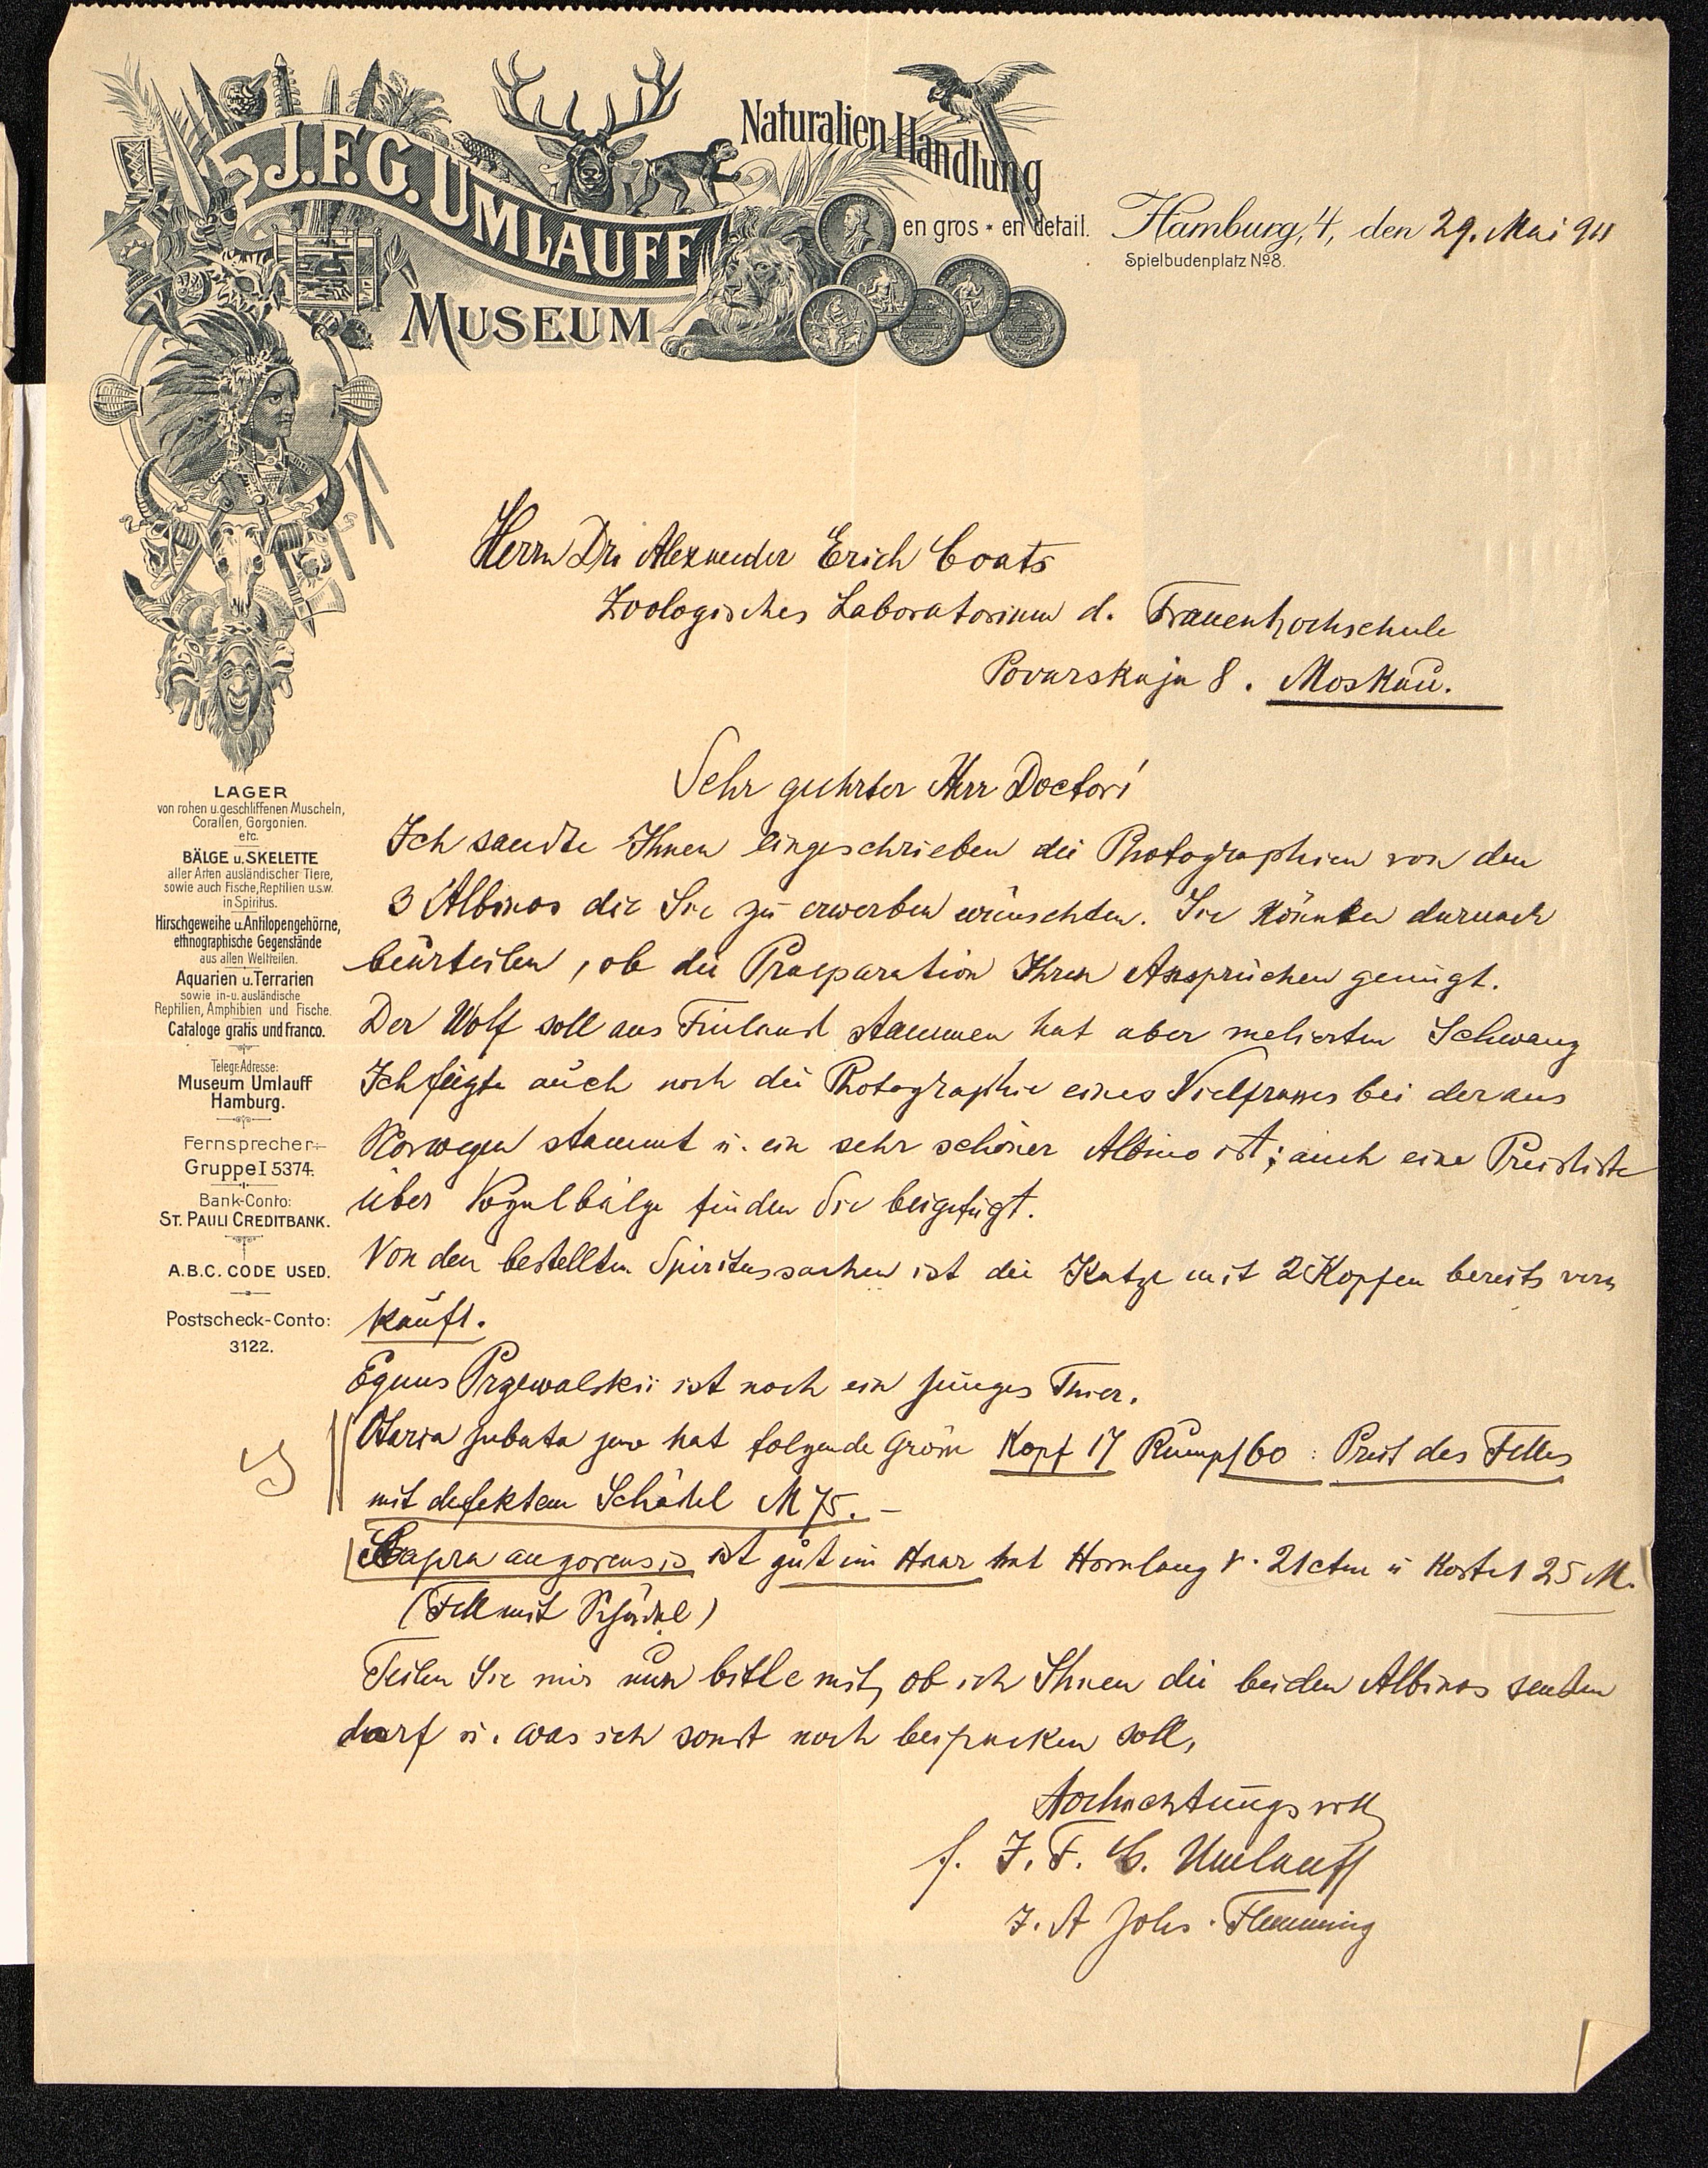 J.F.G. UMLAUFF
Naturalien Handlung
en gros * en detail.
MUSEUM
Hamburg, 4, den 29. Mai 911
Spielbudenplatz No8.
Herrn Dr. Alexander Erich Coats
Zoologisches Laboratorium d. Frauenhochschule
Povarskaja 8. Moskau.
Sehr geehrter Herr Doctor!
Ich sandte Ihnen eingeschrieben die Photographien von den
3 Albinos die Sie zu erwerben wünschten. Sie könnten darnach
beurteilen, ob die Praeparation Ihren Ansprüchen genügt.
Der Wolf soll aus Finland stammen hat aber melierten Schwanz
Ich fügte auch noch die Photographie eines Vielfrasses bei der aus
Norwegen stammt u. ein sehr schöner Albino ist; auch eine Preisliste
über Vogelbälge finden Sie beigefügt.
Von den bestellten Spiritussachen ist die Katze mit 2 Köpfen bereits ver-
kauft.
Equus Przewalskii ist noch ein junges Thier.
Otaria jubata juv hat folgende Grösse Kopf 17 Rumpf 60 : Preis des Felles
mit defektem Schädel M 75. –
Capra angorensis ist gut im Haar hat Hornlang v. 21 ctm u kostet 25 M.
(Fell mit Schädel)
Teilen Sie mir nun bitte mit, ob ich Ihnen die beiden Albinos senden
darf u. was ich sonst noch beipacken soll,
Hochachtungsvoll
f. J. F. G. Umlauff
I. A Johs. Flemming
LAGER
von rohen u. geschliffenen Muscheln,
Corallen, Gorgonien.
etc.
BÄLGE u. SKELETTE
aller Arten ausländischer Tiere,
sowie auch Fische, Reptilien u.s.w.
in Spiritus.
Hirschgeweihe u. Antilopengehörne,
ethnographische Gegenstände
aus allen Weltteilen.
Aquarien u. Terrarien
sowie in- u. ausländische
Reptilien, Amphibien und Fische.
Cataloge gratis und franco.
Telegr. Adresse:
Museum Umlauff
Hamburg.
Fernsprecher:
Gruppe I 5374.
Bank-Conto:
ST. PAULI CREDITBANK.
A.B.C. CODE USED.
Postscheck-Conto:
3122.